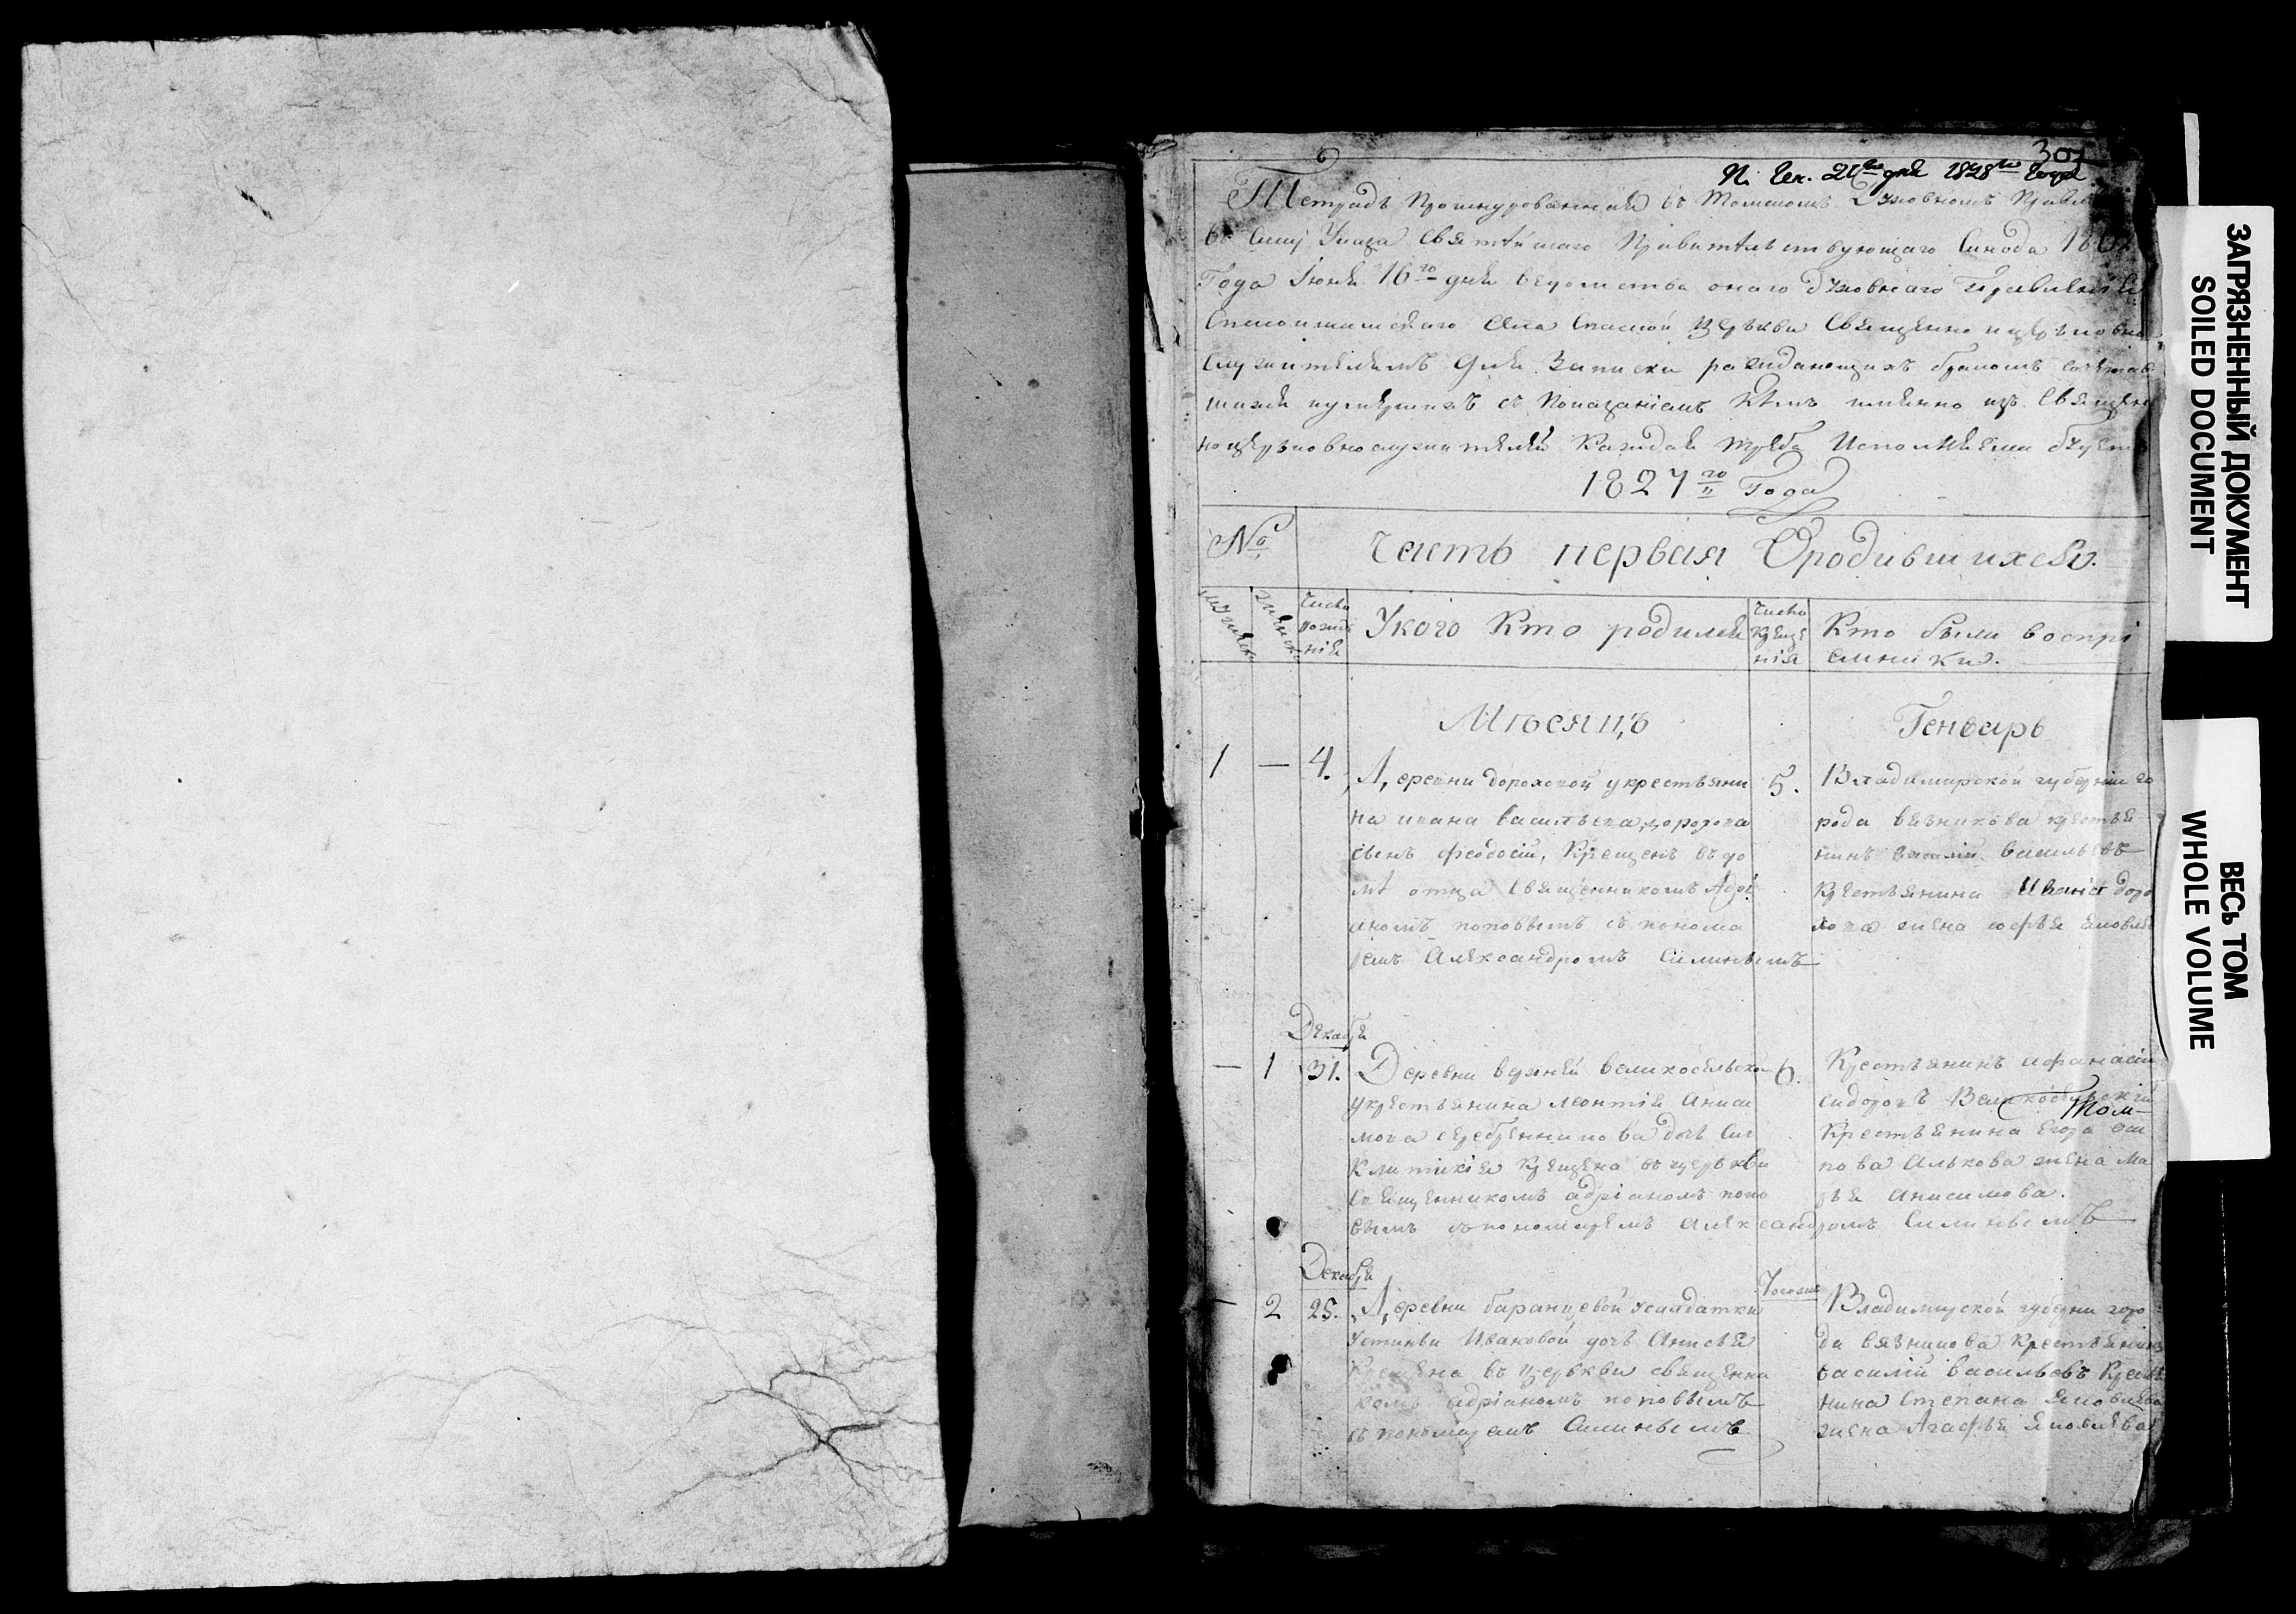 301
П. Ген. 21го дня 1828го Года
Тетрадь Прошнурованная въ Томскомъ Духовномъ Правле
въ силу Указа Святѣйшаго Правительствующаго Синода 180
Года Іюня 16го дня ведомства онаго духовнаго Правления
Спаской Церкви Священно и церковно
служителямъ Для Записки раждающихъ бракомъ сочетав
шихся и умершихъ съ Показаніемъ Кѣмъ имянно изъ Священ
но церковнослужителей Каждая Треба Исполняема будетъ
1827го Года
№ Часть первая О родившихся.
мужеска женска Число рожде нія У кого Кто родился Число Креще нія Кто были воспрі
емники.
Мѣсяцъ Генварь
1 — 4. Деревни Дороховой у крестьяни
на ивана васильева дорохова
сынъ феодосій, Крещенъ въ до
мѣ отца Священникомъ Адрі
аномъ поповымъ съ понома
ремъ Александромъ Силинымъ
5. Владимирской губернии го
рода вязникова крестья
нинъ василій васильевъ
Крестьянина Ивана доро
хова жена софья яковле
Декабря
— 1 31. Деревни верхней великосельско
у крестьянина леонтія аниси
мова серебренникова дочь Син
клитикія Крещена въ церькви
Священникомъ адріаномъ попо
вымъ съ пономаремъ александромъ Силинымъ
6. Крестьянинъ афанасій
сидоровъ Великосельский
Том—
Крестьянина Егора оси
пова Алькова жена Ма
рья анисимова.
Декабря
— 2 25. Деревни баранцевой у салдатки
Устиньи Ивановой дочь Анисья
Крещена въ церькви священни
комъ адріаномъ поповымъ
съ пономаремъ Силинымъ
Тогоже Владимирской губернии горо
да вязникова Крестьянинъ
василий васильевъ Крестья
нина Степана Яковлева
жена Агафья яковлева
ЗАГРЯЗНЕННЫЙ ДОКУМЕНТ
SOILED DOCUMENT
ВЕСЬ ТОМ
WHOLE VOLUME